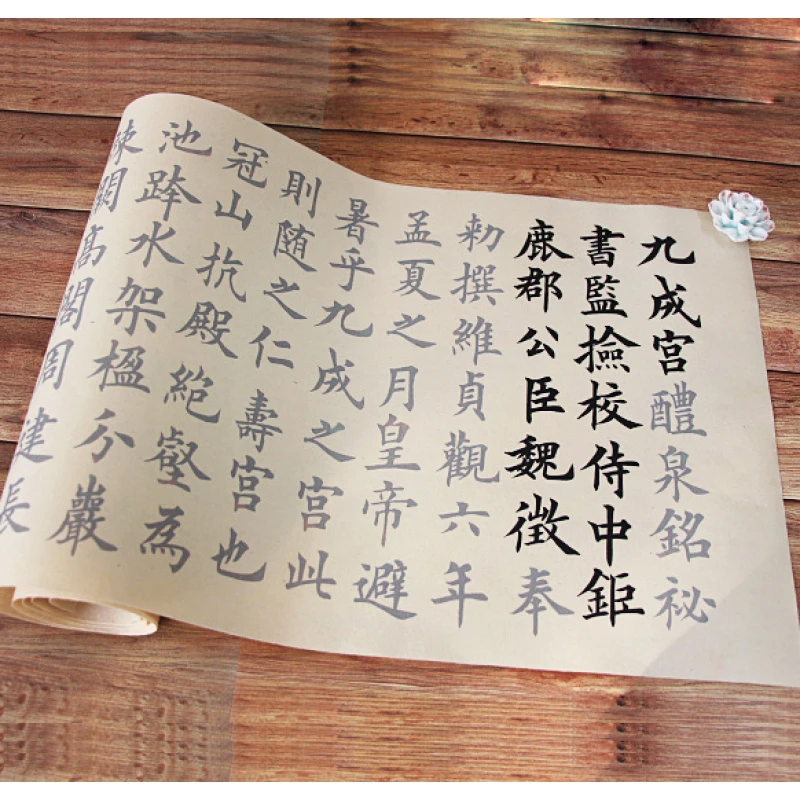 九成宫醴泉銘祕
書監撿校侍中鉅
鹿郡公臣魏徵奉
勅撰維貞觀六年
孟夏之月皇帝避
暑乎九成之宫此
則随之仁壽宫也
冠山抗殿絶壑為
池跨水架楹分巖
竦闕高閣周建長